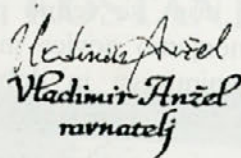 Vladimir Anžel
Vladimir Anžel
ravnatelj